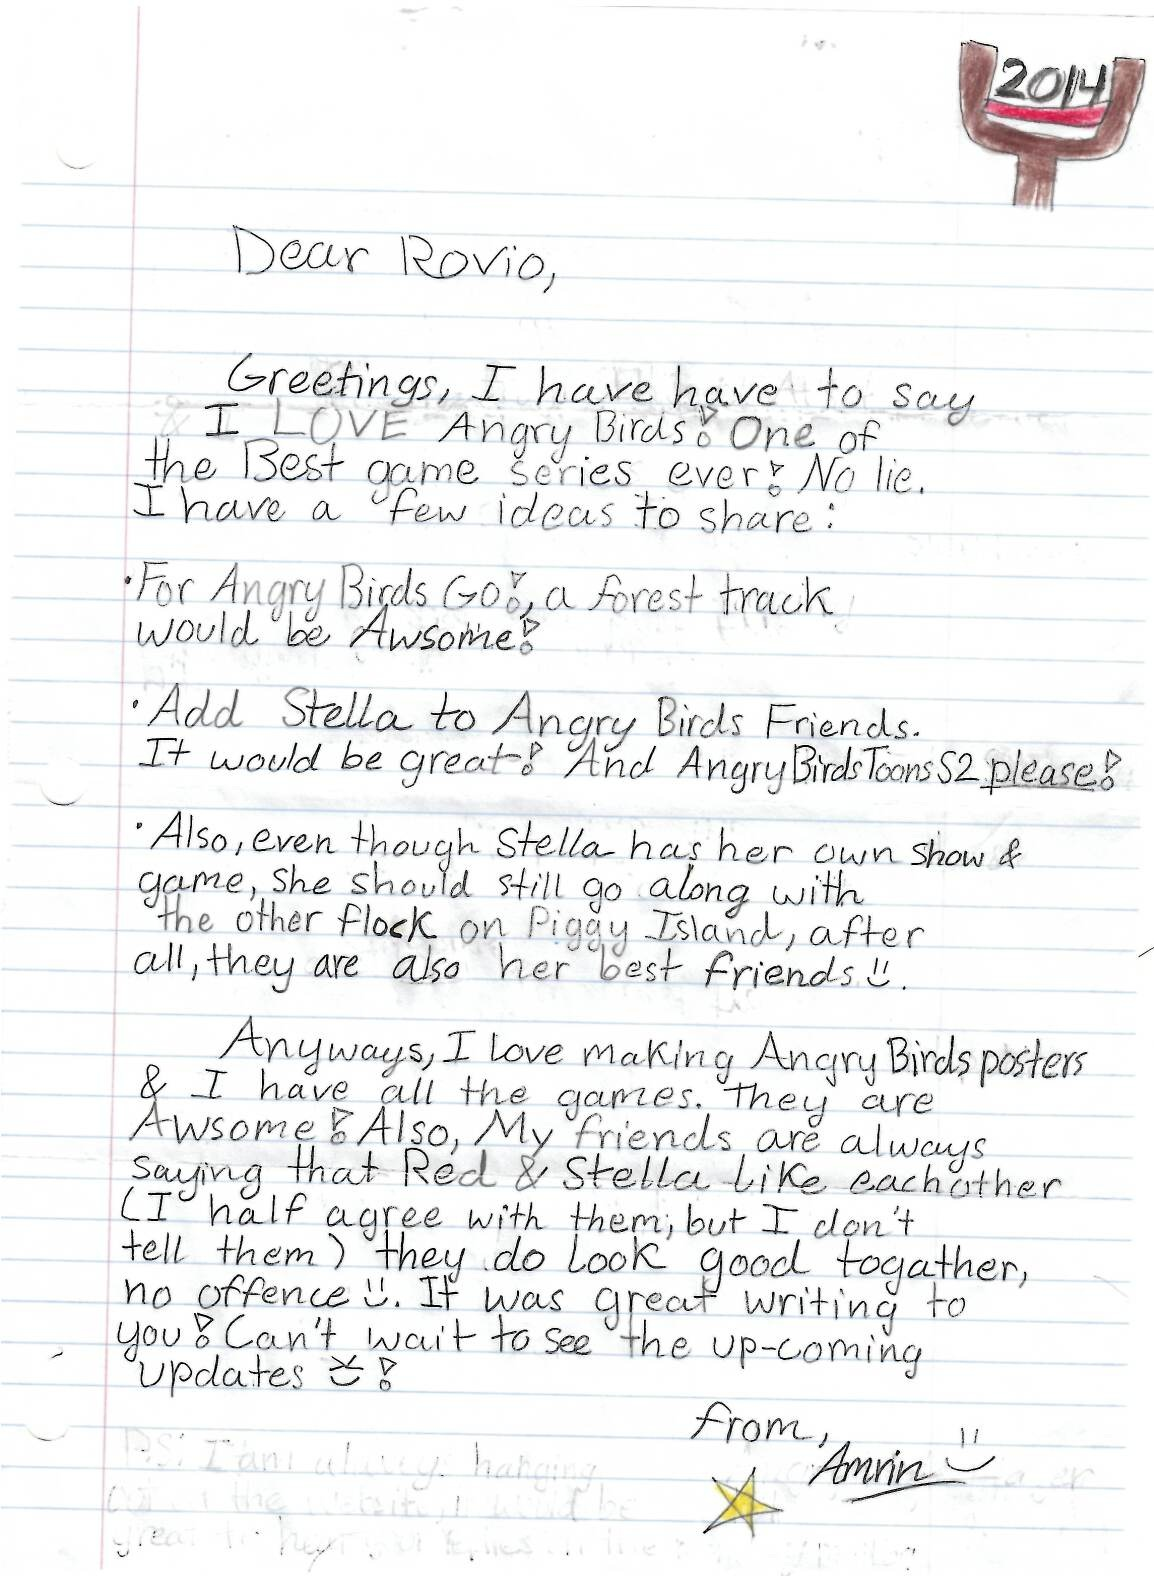 2014
Dear Rovio,
Greetings, I have have to say
I LOVE Angry Birds! One of
the Best game series ever! No lie.
I have a few ideas to share:
•For Angry Birds Go!, a forest track
would be Awsome!
•Add Stella to Angry Birds Friends.
It would be great! And Angry Birds Toons S2 please!
•Also, even though Stella has her own show &
game, she should still go along with
the other flock on Piggy Island, after
all, they are also her best friends :).
Anyways, I love making Angry Birds posters
& I have all the games. They are
Awsome! Also, My friends are always
saying that Red & Stella like eachother
(I half agree with them, but I don't
tell them) they do look good togather,
no offence :). It was great writing to
you! Can't wait to see the up-coming
updates !
from,
Amrin :)
P.S. I am always hanging
the would be
great to hear